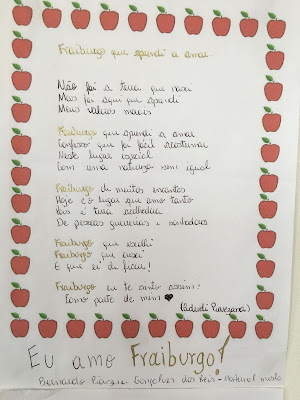 Fraiburgo que aprendi a amar
Não foi a terra que nasci
Mas foi aqui que aprendi
Meus valores morais
Fraiburgo que aprendi a amar
Confesso que foi fácil acostumar
Neste lugar especial
Com uma natureza sem igual
Fraiburgo de muitos encantos
Hoje é o lugar que amo tanto
Pois é terra acolhedora
De pessoas guerreiras e sonhadoras
Fraiburgo que escolhi
Fraiburgo que cresci
E que irei de ficar!
Fraiburgo eu te sinto assim:
Como parte de mim ❤
Eu amo Fraiburgo!
Gonçalves dos Reis - maternal misto